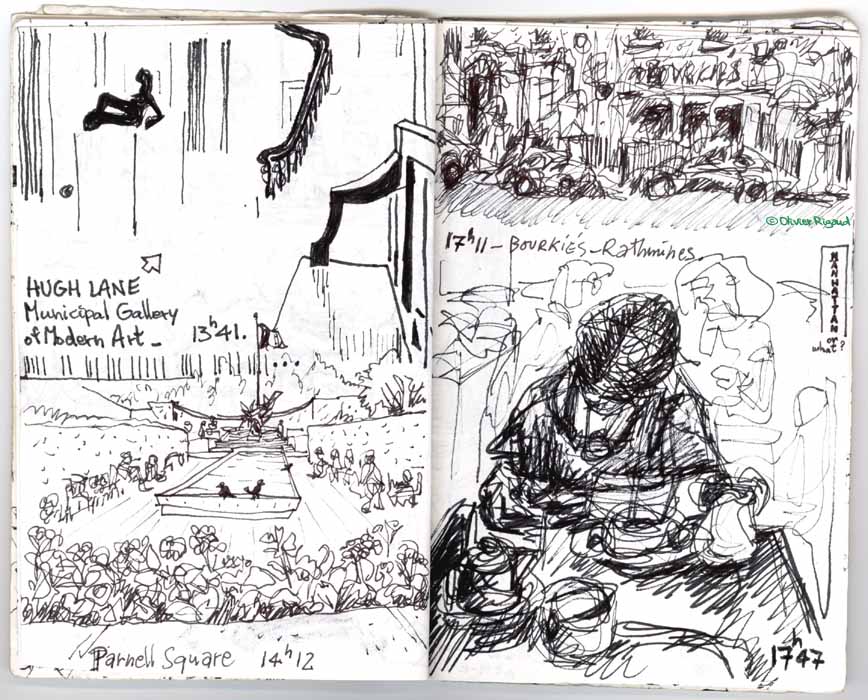 HUGH LANE
Municipal Gallery
of Modern Art _ 13h41.
Parnell Square 14h12
BOURKIÉS
© Olivier Rigaud
17h11 - BOURKIÉS - Rathmines.
MANHATTAN
or
what?
17h47